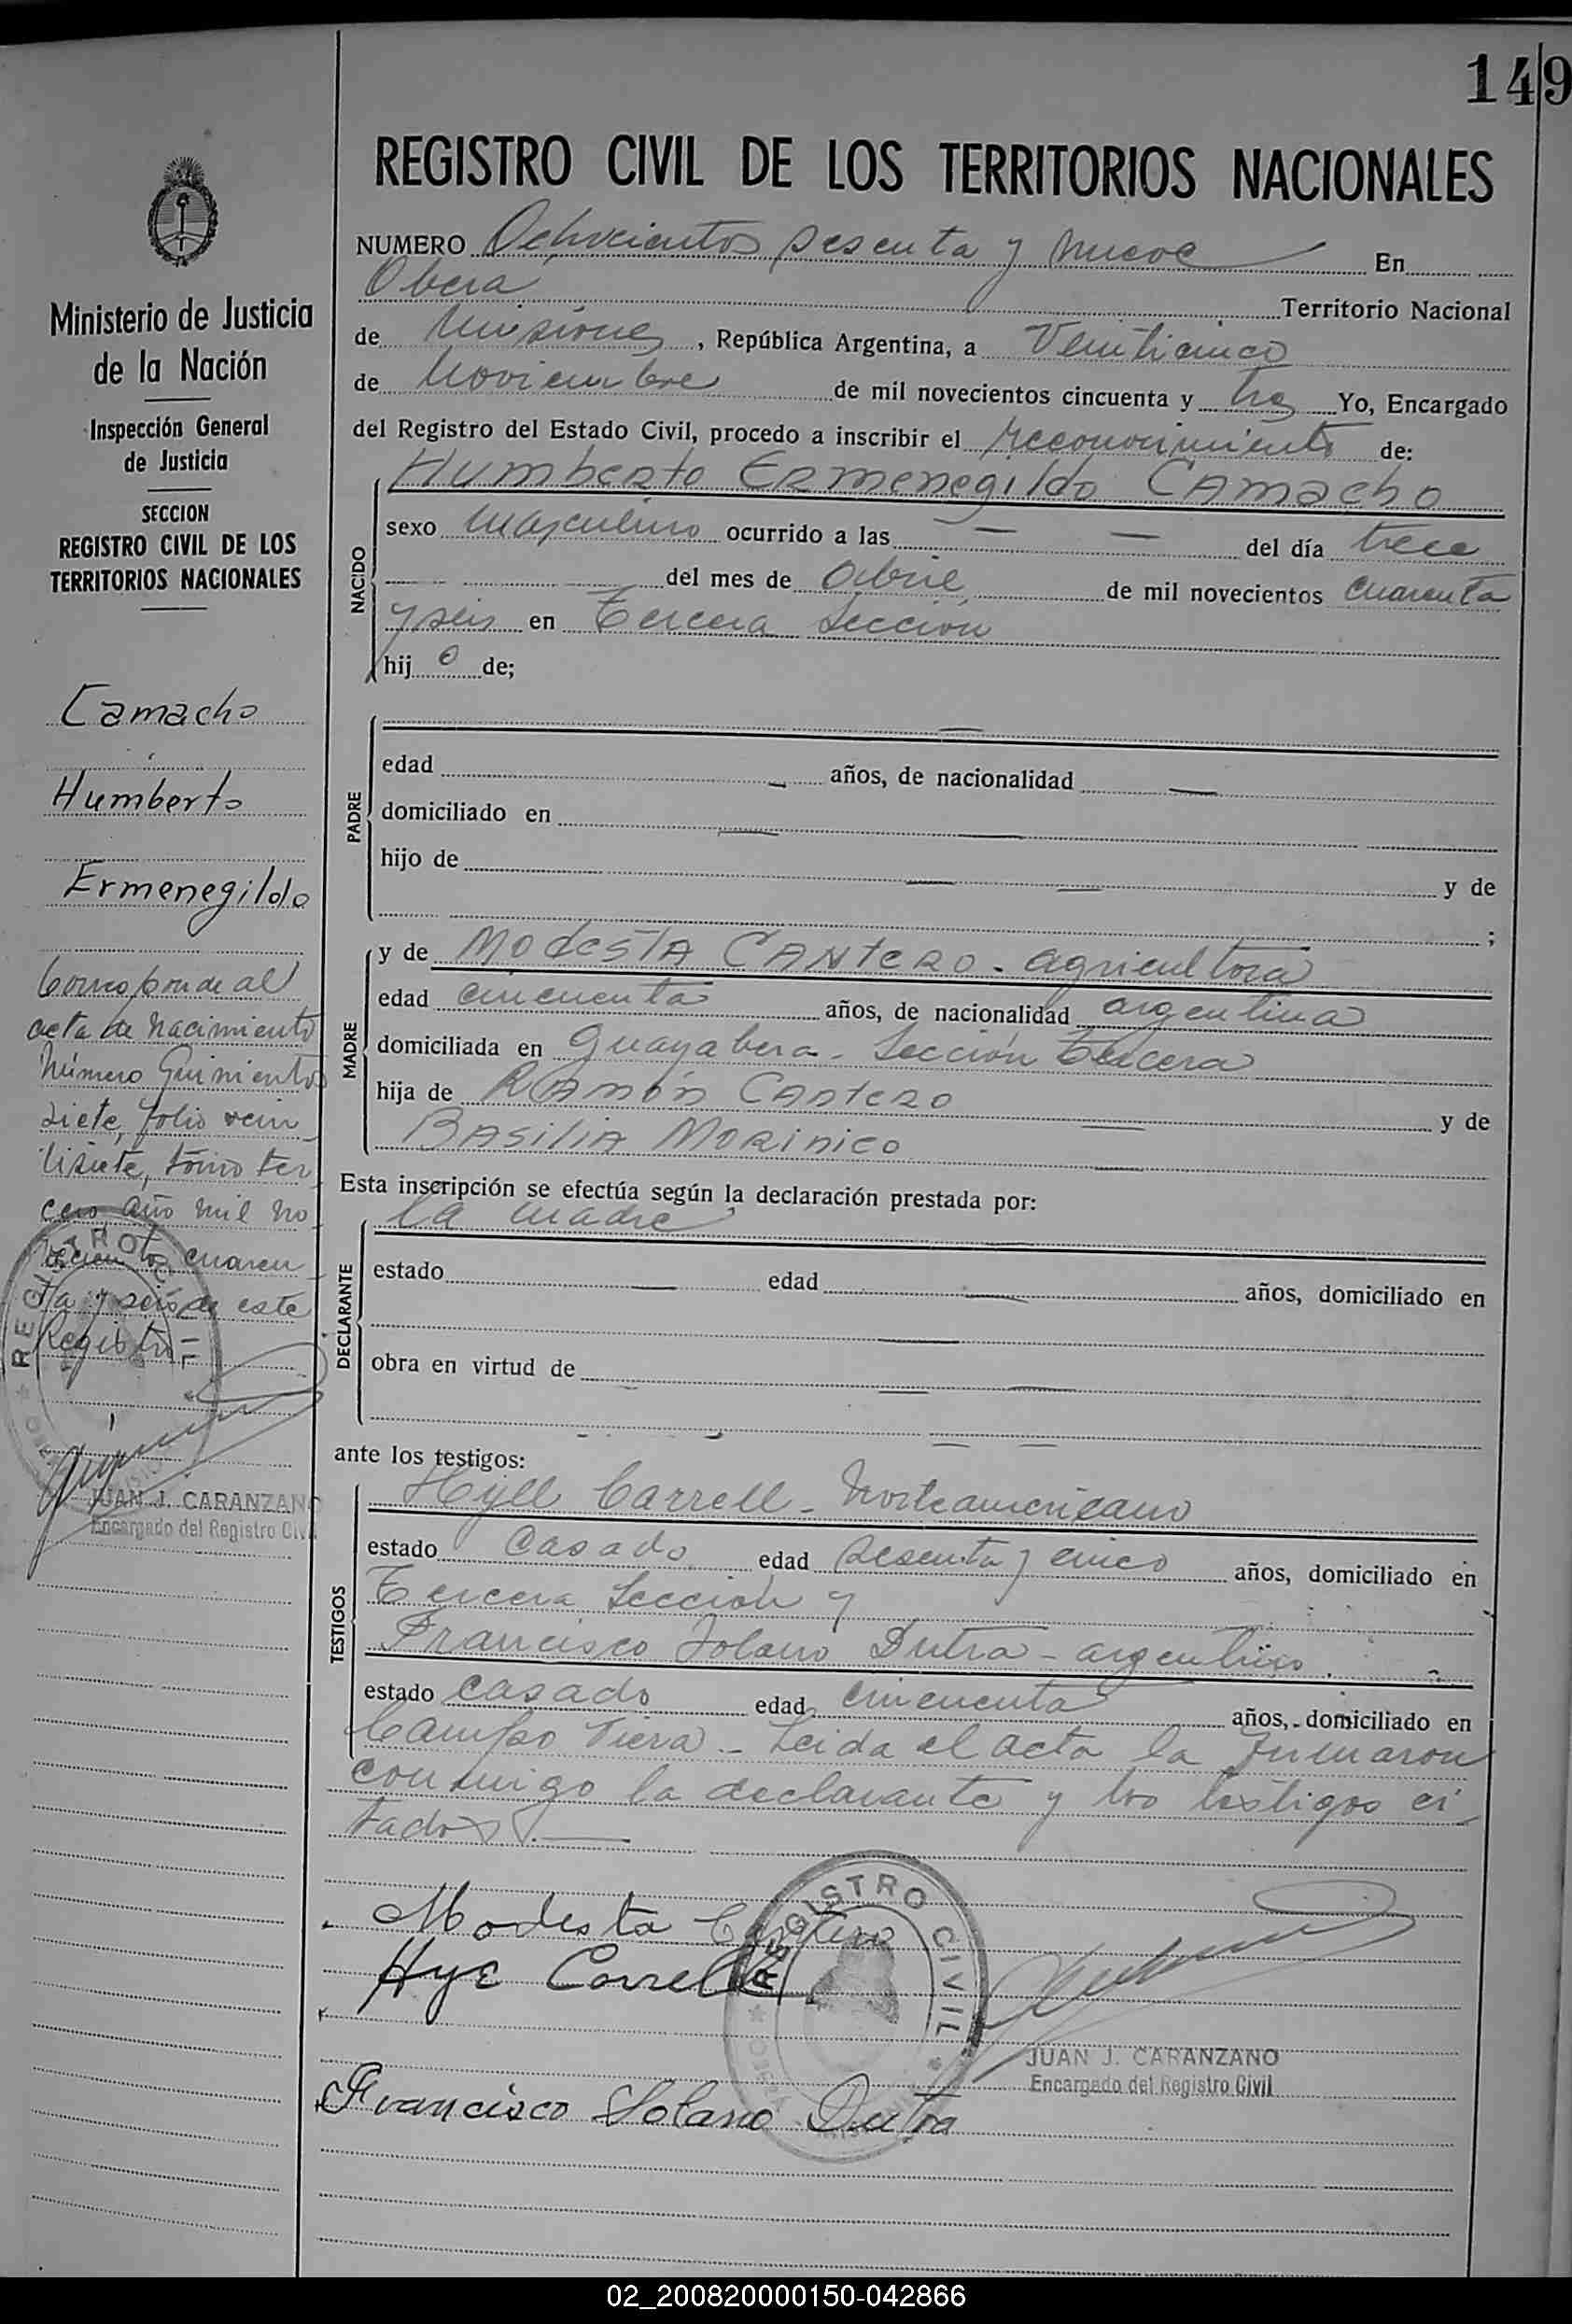 149
REGISTRO CIVIL DE LOS TERRITORIOS NACIONALES
Ministerio de Justicia
de la Nación
Inspección General
de Justicia
SECCION
REGISTRO CIVIL DE LOS
TERRITORIOS NACIONALES
Camacho
Humberto
Ermenegildo
Corresponde al
acta de nacimiento
Número Quinientos
siete, folio vein
tisiete, tomo ter
cero año mil no
vecientos cuaren
ta y seis de este
Registro
JUAN J. CARANZANO
Encargado del Registro Civil
NUMERO Ochocientos sesenta y nueve En
Obera Territorio Nacional
de Misiones, República Argentina, a Veinticinco
de Noviembre de mil novecientos cincuenta y tres Yo, Encargado
del Registro del Estado Civil, procedo a inscribir el reconocimiento de:
NACIDO
Humberto Ermenegildo Camacho
sexo masculino ocurrido a las — — del día trece
del mes de abril de mil novecientos cuarenta
y seis en Tercera Sección
hijo de;
PADRE
—
edad — años, de nacionalidad —
domiciliado en — —
hijo de — — y de
;
MADRE
y de Modesta CANTERO - agricultora
edad cincuenta años, de nacionalidad argentina
domiciliada en Guayabera - Sección tercera
hija de Ramón Cantero — y de
BASILIA MORINICO —
Esta inscripción se efectúa según la declaración prestada por:
DECLARANTE
la madre —
estado — edad — años, domiciliado en
—
obra en virtud de — —
— —
ante los testigos:
TESTIGOS
Hyll Carrell - Norteamericano
estado Casado edad sesenta y cinco años, domiciliado en
Tercera Sección y
Francisco Solano Dutra - argentino.
estado casado edad cincuenta años, domiciliado en
Campo Viera - Leida el acta la firmaron
conmigo la declarante y los testigos ci
tados.—
Modesta Cantero
Hyc Carrell
REGISTRO CIVIL
JUAN J. CARANZANO
Encargado del Registro Civil
Francisco Solano Dutra
02_200820000150-042866